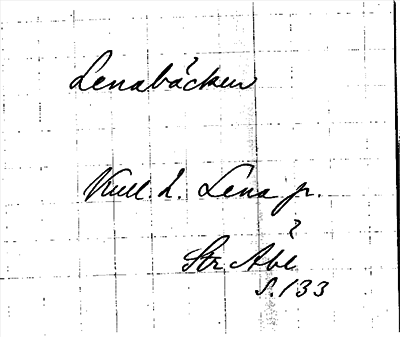 Lenabäcken
Kull. h. Lena pr.
?
Str. Abl.
S. 133